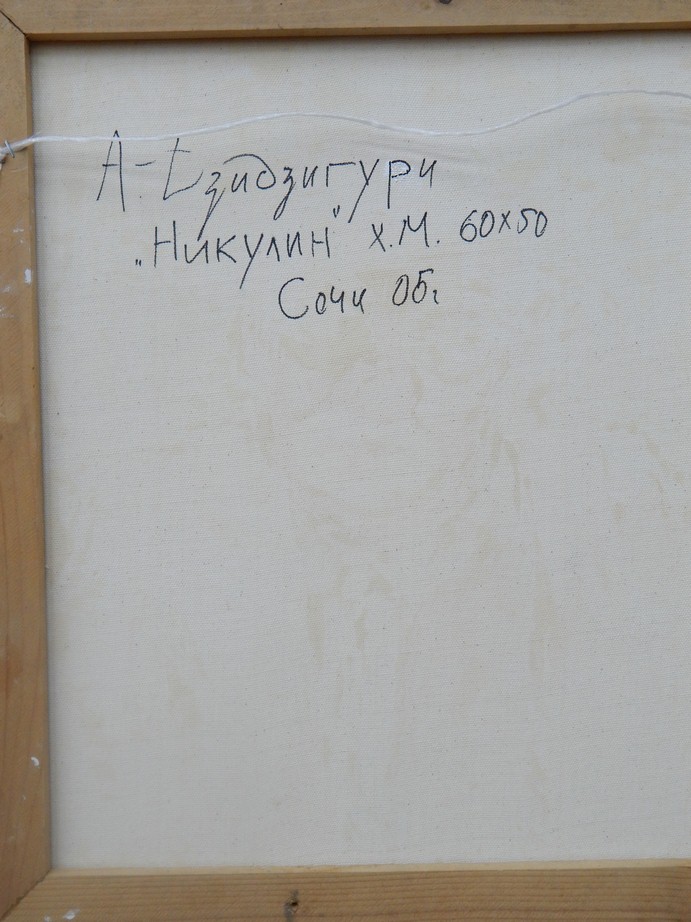 А-Дзидзигури
„Никулин" х.м. 60х50
Сочи 05г